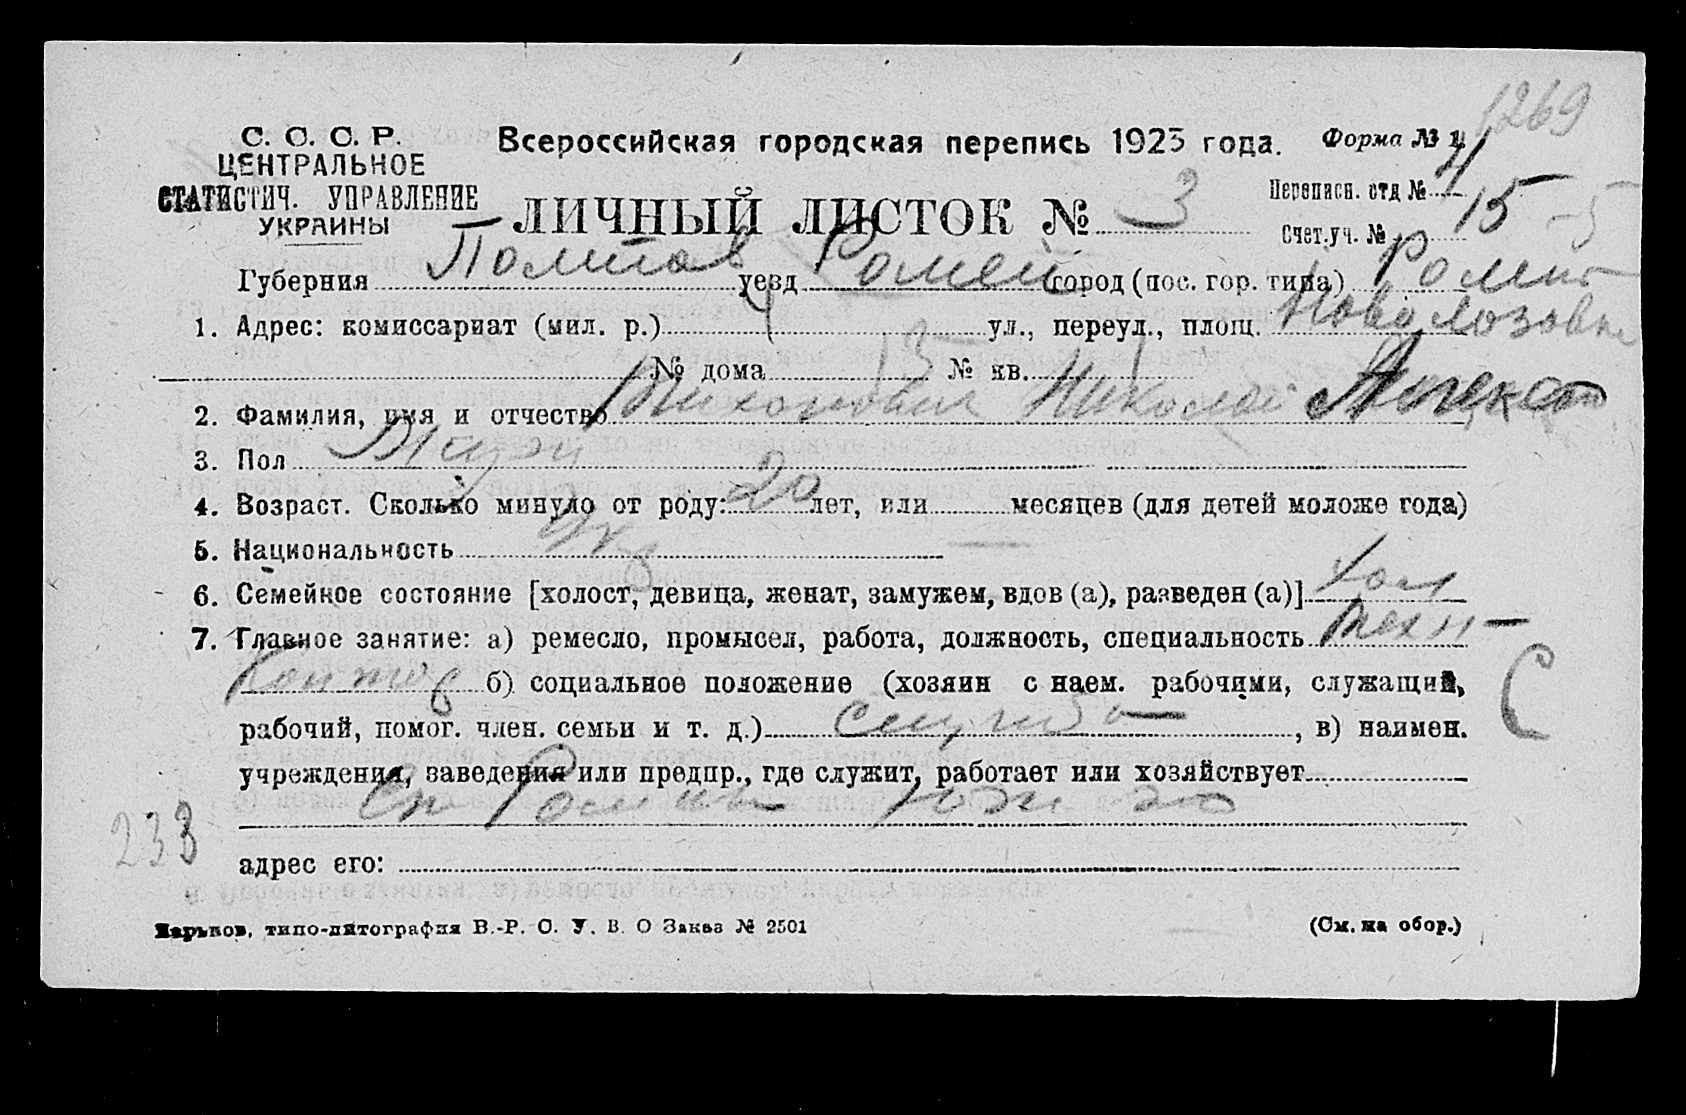 1269
С. С. С. Р. Всероссийская городская перепись 1923 года. Форма № 1
ЦЕНТРАЛЬНОЕ
СТАТИСТИЧ. УПРАВЛЕНИЕ
УКРАИНЫ
ЛИЧНЫЙ ЛИСТОК № 3 Переписн. отд №
Счет.уч. № 15
Губерния Полтав уезд Ромен город (пос. гор. типа) Ромн
1. Адрес: комиссариат (мил. р.) ул., переул., площ. Новолозовк
№ дома 13 № кв. 1
2. Фамилия, имя и отчество Тихонович Николай Алекс
3. Пол Муж
4. Возраст. Сколько минуло от роду: 20 лет, или месяцев (для детей моложе года)
5. Национальность Укр
6. Семейное состояние [холост, девица, женат, замужем, вдов (а), разведен (а)] хол
7. Главное занятие: а) ремесло, промысел, работа, должность, специальность техн
контор б) социальное положение (хозяин с наем. рабочими, служащий, С
рабочий, помог. член. семьи и т. д.) служб , в) наимен.
учреждения, заведения или предпр., где служит, работает или хозяйствует
Ст Ромны
233
адрес его:
Харьков, типо-литография В.-Р. С. У. В. О Заказ № 2501 (См. на обор.)